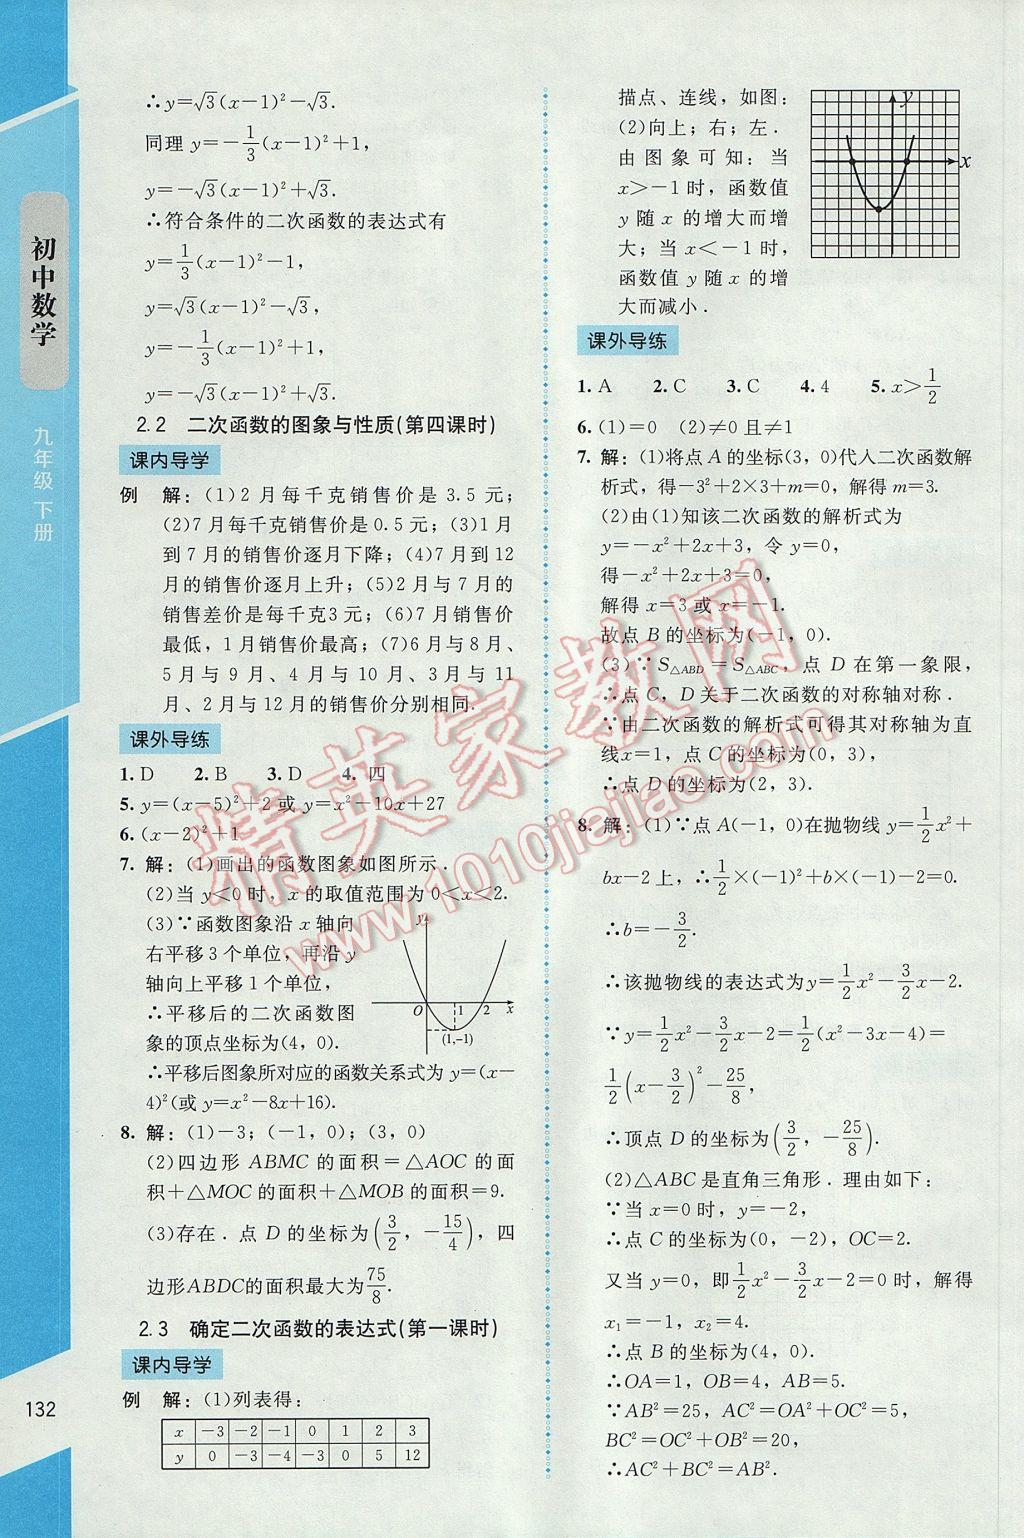 初中数学
九年级 下册
132
∴y=√3(x-1)²-√3.
同理 y=-1/3(x-1)²+1,
y=-√3(x-1)²+√3.
∴符合条件的二次函数的表达式有
y=1/3(x-1)²-1,
y=√3(x-1)²-√3,
y=-1/3(x-1)²+1,
y=-√3(x-1)²+√3.
2.2 二次函数的图象与性质(第四课时)
课内导学
例 解:(1)2月每千克销售价是3.5元;
(2)7月每千克销售价是0.5元;(3)1月
到7月的销售价逐月下降;(4)7月到12
月的销售价逐月上升;(5)2月与7月的
销售差价是每千克3元;(6)7月销售价
最低,1月销售价最高;(7)6月与8月、
5月与9月、4月与10月、3月与11
月、2月与12月的销售价分别相同.
课外导练
1. D 2. B 3. D 4. 四
5. y=(x-5)²+2或y=x²-10x+27
6. (x-2)²+1
7. 解:(1)画出的函数图象如图所示.
(2)当y<0时,x的取值范围为0<x<2.
(3)∵函数图象沿x轴向
右平移3个单位,再沿y
轴向上平移1个单位,
∴平移后的二次函数图
象的顶点坐标为(4,0).
y
O 1 2 x
(1,-1)
∴平移后图象所对应的函数关系式为y=(x-
4)²(或y=x²-8x+16).
8. 解:(1)-3;(-1,0);(3,0)
(2)四边形ABMC的面积=△AOC的面
积+△MOC的面积+△MOB的面积=9.
(3)存在.点D的坐标为(3/2,-15/4),四
边形ABDC的面积最大为75/8.
2.3 确定二次函数的表达式(第一课时)
课内导学
例 解:(1)列表得:
x -3 -2 -1 0 1 2 3
y 0 -3 -4 -3 0 5 12
描点、连线,如图:
(2)向上;右;左.
由图象可知:当
x>-1时,函数值
y随x的增大而增
大;当x<-1时,
函数值y随x的增
大而减小.
y
x
课外导练
1. A 2. C 3. C 4. 4 5. x>1/2
6. (1)=0 (2)≠0且≠1
7. 解:(1)将点A的坐标(3,0)代人二次函数解
析式,得-3²+2×3+m=0,解得m=3.
(2)由(1)知该二次函数的解析式为
y=-x²+2x+3,令y=0,
得-x²+2x+3=0,
解得x=3或x=-1.
故点B的坐标为(-1,0).
(3)∵S△ABD=S△ABC,点D在第一象限,
∴点C,D关于二次函数的对称轴对称.
∵由二次函数的解析式可得其对称轴为直
线x=1,点C的坐标为(0,3),
∴点D的坐标为(2,3).
8. 解:(1)∵点A(-1,0)在抛物线y=1/2x²+
bx-2上,∴1/2×(-1)²+b×(-1)-2=0.
∴b=-3/2.
∴该抛物线的表达式为y=1/2x²-3/2x-2.
∵y=1/2x²-3/2x-2=1/2(x²-3x-4)=
1/2(x-3/2)²-25/8,
∴顶点D的坐标为(3/2,-25/8).
(2)△ABC是直角三角形.理由如下:
∵当x=0时,y=-2,
∴点C的坐标为(0,-2),OC=2.
又当y=0,即1/2x²-3/2x-2=0时,解得
x₁=-1,x₂=4.
∴点B的坐标为(4,0).
∴OA=1,OB=4,AB=5.
∵AB²=25,AC²=OA²+OC²=5,
BC²=OC²+OB²=20,
∴AC²+BC²=AB².
精英家教网
www.1010jiajiao.com